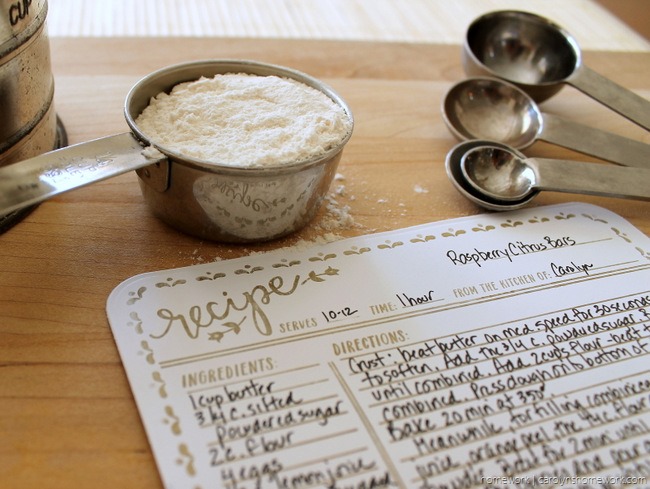 CUP
Raspberry Citrus Bars
recipe SERVES 10-12 TIME: 1 hour FROM THE KITCHEN OF: Carolyn
INGREDIENTS:
1 cup butter
3/4 c. sifted
powdered sugar
2 c. flour
4 eggs
DIRECTIONS:
Crust: beat butter on med speed for 30 seconds
to soften. Add the 3/4 c. powdered sugar &
until combined. Add 2 cups flour - beat
combined. Press dough onto bottom of
Bake 20 min at 350°.
Meanwhile, for filling combine
juice, orange peel, the flour
for 2 min until
homework | carolynshomework.com